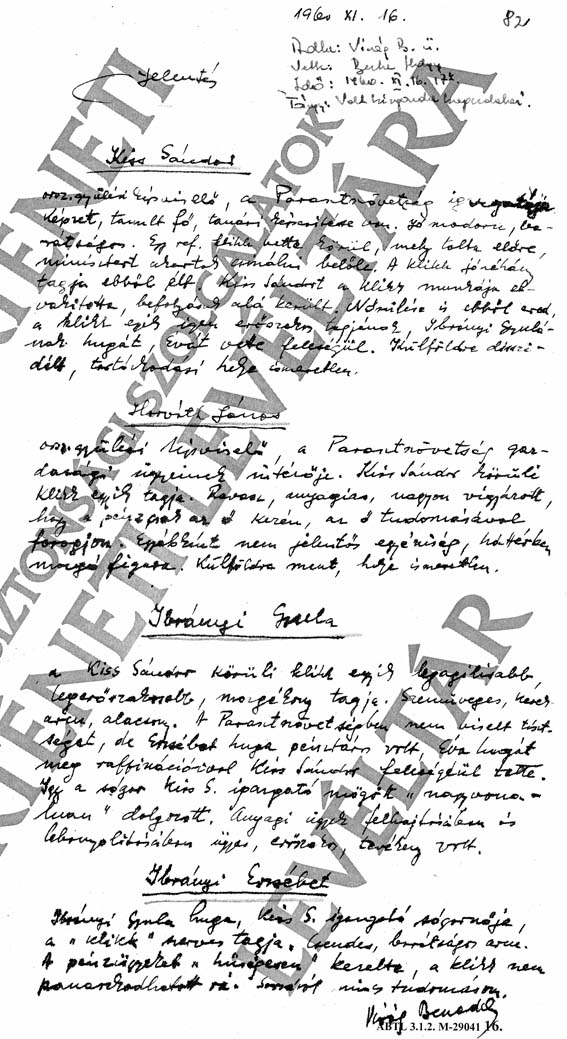 1960 XI. 16.
82
Adta: Virág B. ü.
Vette:
Idő: 1960. XI. 16. 17h
Tárgy: Volt
Jelentés
Kiss Sándor
országgyűlési képviselő, a Parasztszövetség igazgatója
képzet, tanult fő, tanári képesítése van. Jó modoru, ba-
rátságos. Egy ref. klikk vette körül, mely tolta előre,
minisztert akartak csinálni belőle. A klikk jónéhány
tagja ebből élt. Kiss Sándort a klikk munkája el-
vakította, befolyásuk alá került. Nősülése is ebből ered,
a klikk egyik igen erőszakos tagjának, Ibrányi Gyulá-
nak hugát, Évát vette feleségül. Külföldre disszi-
dált, tartózkodási helye ismeretlen.
Horváth János
országgyűlési képviselő, a Parasztszövetség gaz-
dasági ügyeinek intézője. Kiss Sándor körüli
klikk egyik tagja. Ravasz, anyagias, nagyon vigyázott,
hogy a pénz csak az ő kezén, az ő tudomásával
forogjon. Egyébként nem jelentős egyéniség, háttérben
mozgó figura. Külföldre ment, helye ismeretlen.
Ibrányi Gyula
a Kiss Sándor körüli klikk egyik legagilisabb,
legerőszakosabb, mozgékony tagja. Szemüveges, kerek
arcu, alacsony. A Parasztszövetségben nem viselt tiszt-
séget, de Erzsébet huga pénztáros volt, Éva hugát
meg raffinációival Kiss Sándor feleségéül tette.
Igy a sógor Kiss S. igazgató mögött "nagyvona-
luan" dolgozott. Anyagi ügyek felhajtásában és
lebonyolitásában ügyes, erőszakos, tevékeny volt.
Ibrányi Erzsébet
Ibrányi Gyula huga, Kiss S. igazgató sógornője,
a "klikk" szerves tagja. Csendes, barátságos arcu.
A pénzügyeket "hűségesen" kezelte, a klikk nem
panaszkodhatott rá. Sorsáról nincs tudomásom.
Virág Benedek
ÁBTL 3.1.2. M-29041 16.
TÖRTÉNETI LEVÉLTÁRA